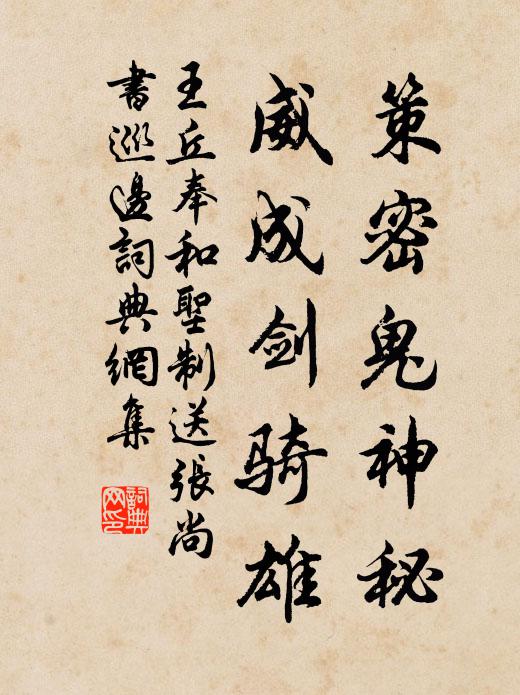 策密鬼神秘
威成剑骑雄
王丘奉和聖制送張尚
書巡邊詞典網集
詞典
网印